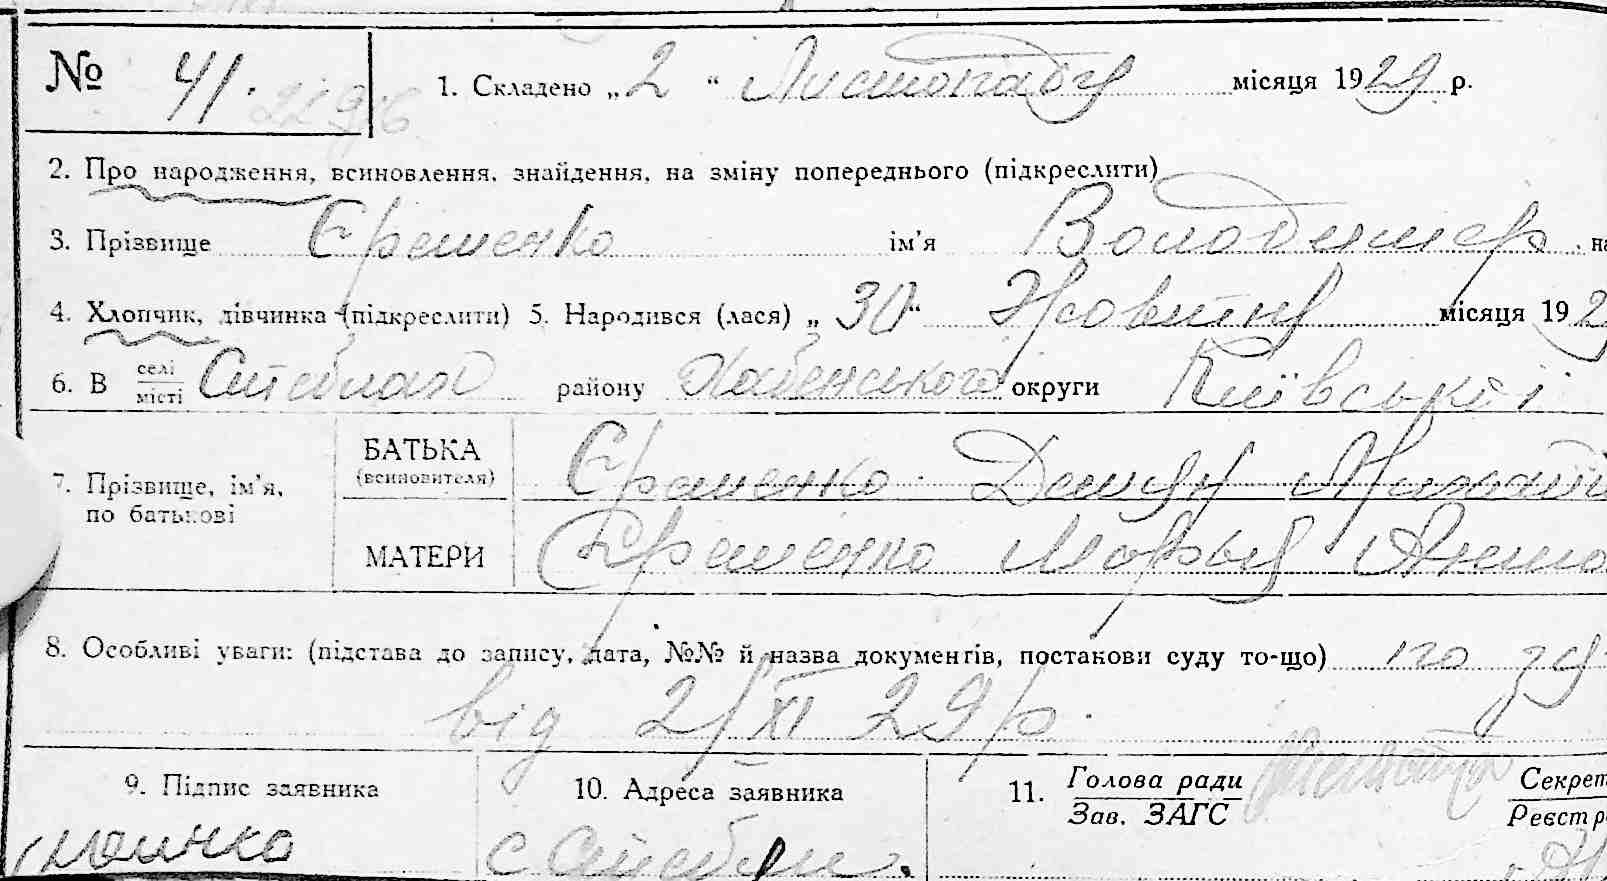 № 41. 1. Складено „2“ Листопаду місяця 1929 р.
2. Про народження, всиновлення, знайдення, на зміну попереднього (підкреслити)
3. Прізвище Єременко ім’я Володимер
4. Хлопчик, дівчинка (підкреслити) 5. Народився (лася) „30“ Жовтня місяця 192
6. В селі
місті районy Хабенського округи Київської
7. Прізвище, ім’я,
по батькові
БАТЬКА
(всиновителя)
Єременко Демян
МАТЕРИ
Єременко Марья
8. Особливі уваги: (підстава до запису, дата, №№ й назва документів, постанови суду то-що) по
від 2/XI 29 р.
9. Підпис заявника
10. Адреса заявника
11. Голова ради
Зав. ЗАГС
Секрет
Реєстр
с